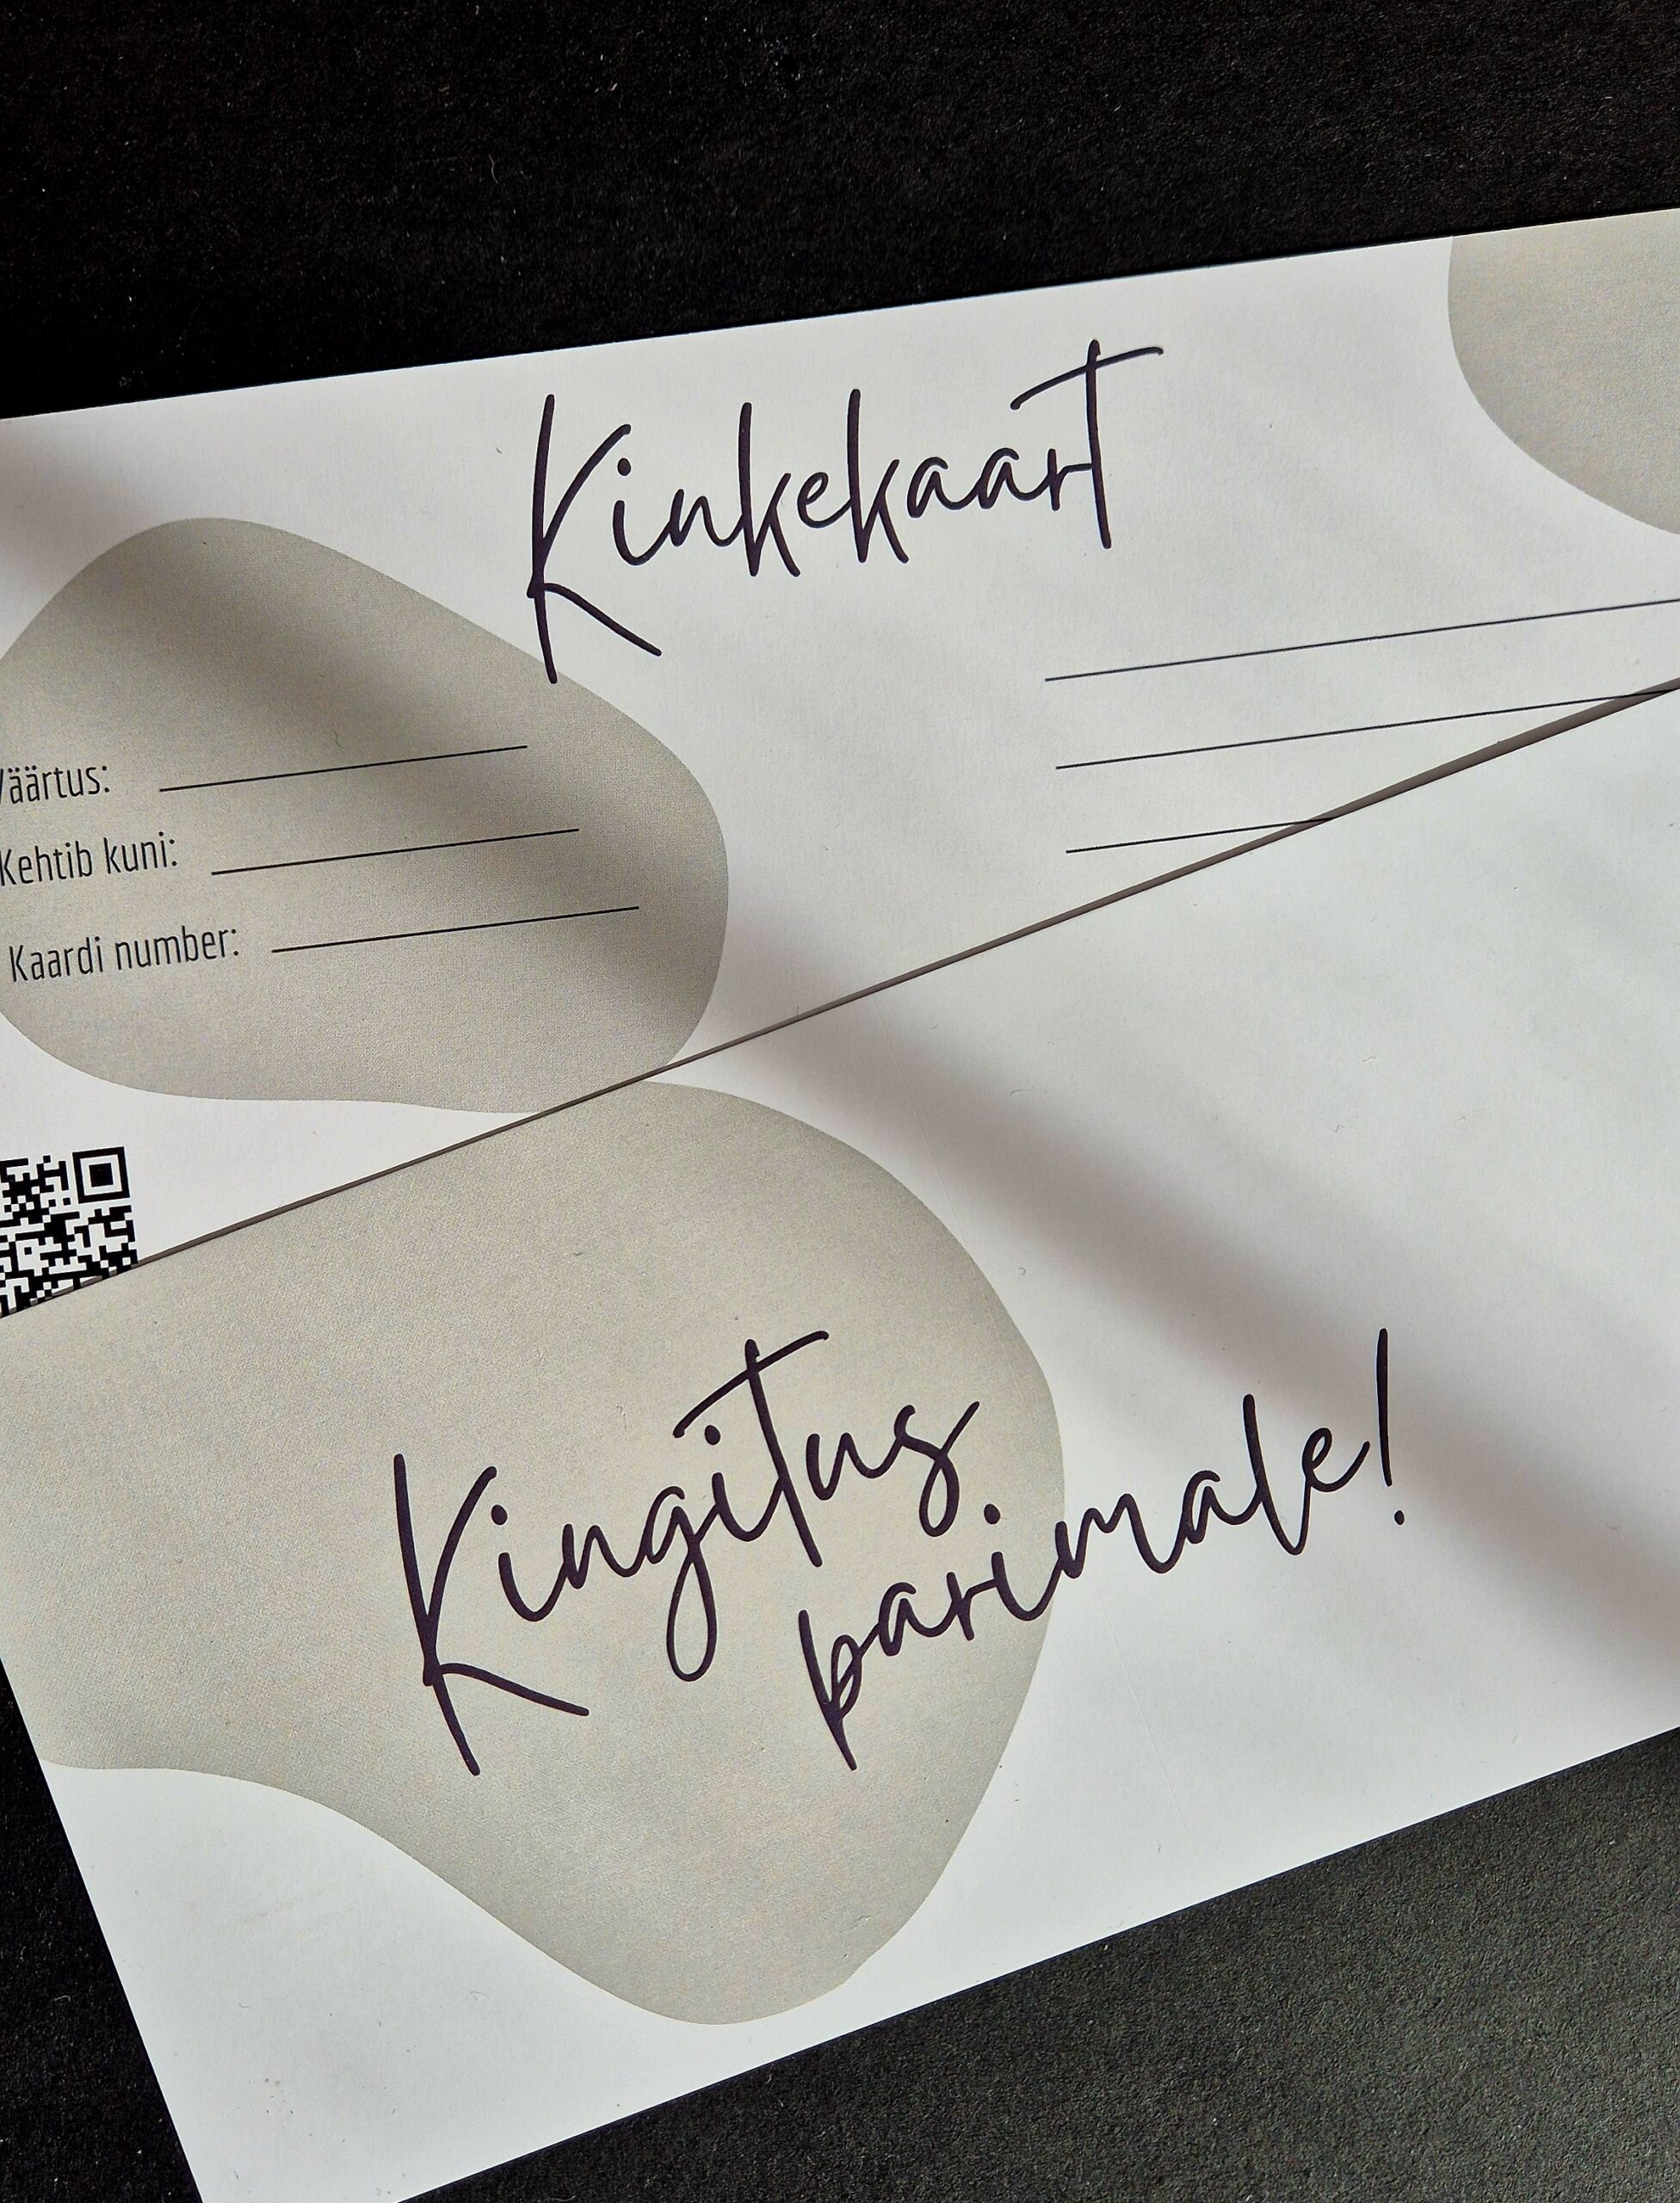 Kinkekaart
Väärtus:
Kehtib kuni:
Kaardi number:
Kingitus
parimale!